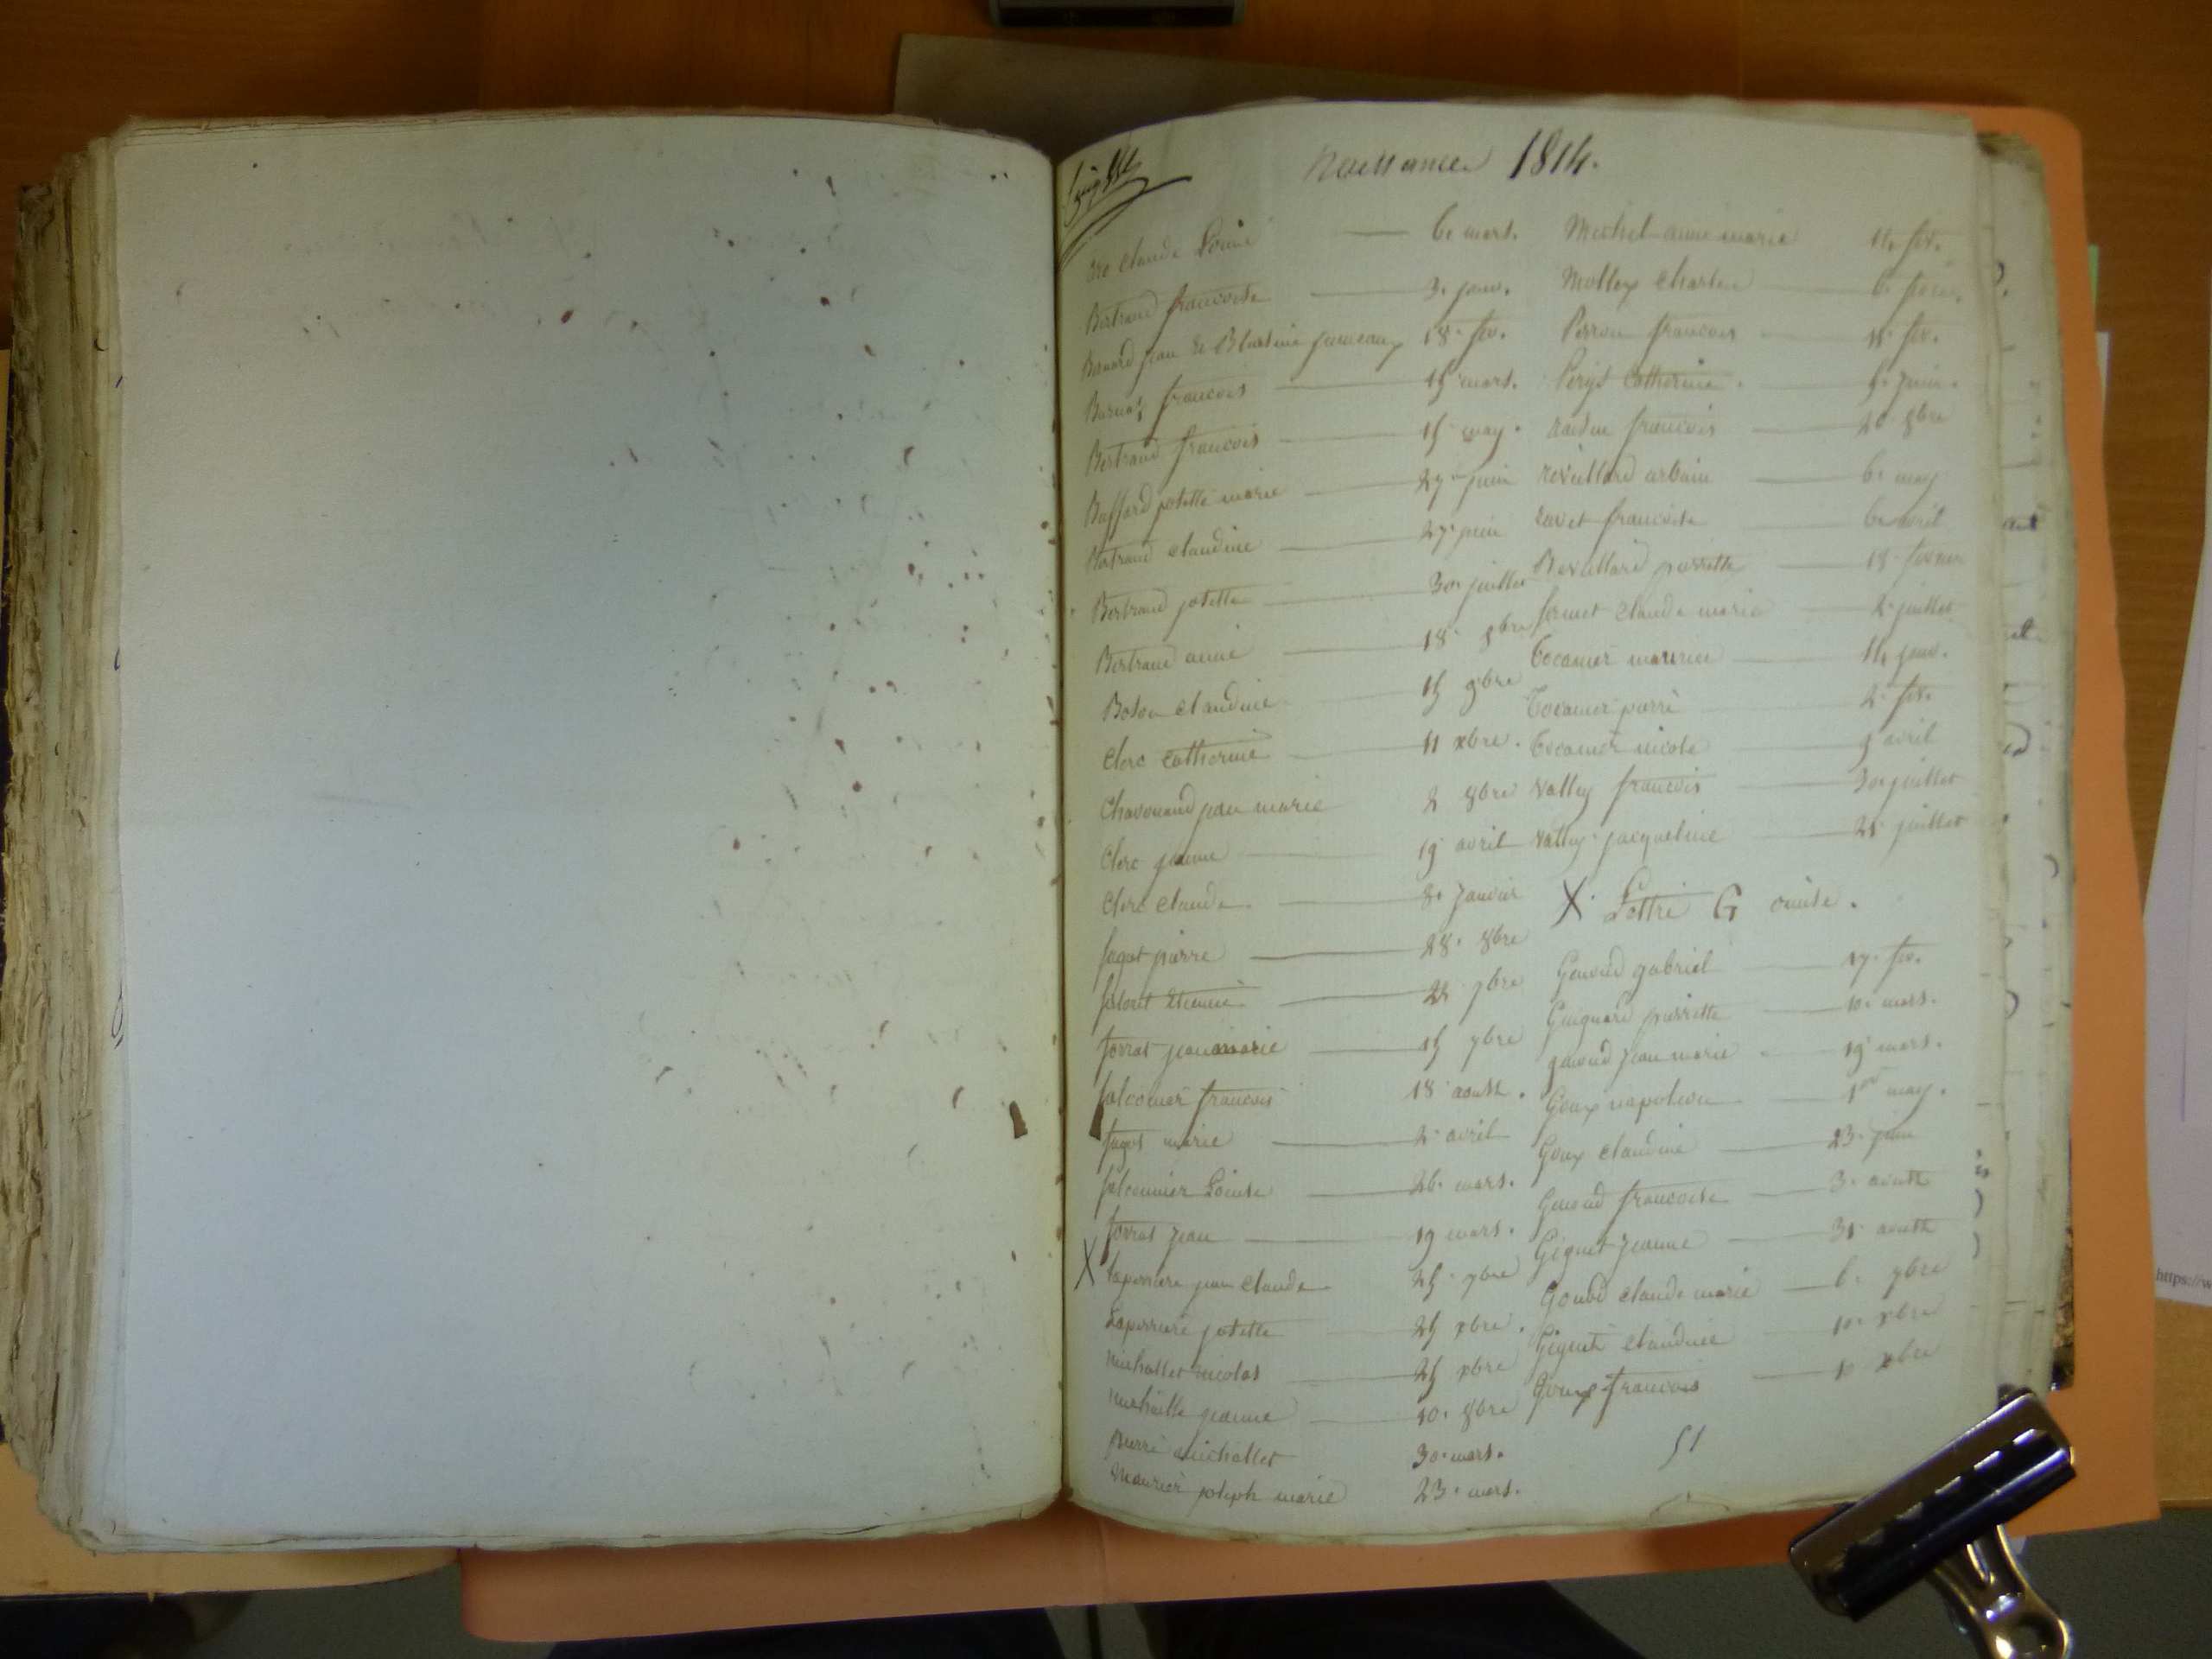 Naissances 1814.
Claude Louise — 6. mars.
Bertrand francoise — 3. janv.
Banard jean & Blastine jumeaux 18. fév.
francois — 15 mars.
Bertrand francois — 15 may.
Buffard josette marie — 27 juin
Bertrand claudine — 27. juin
Bertrand josette — 30. juillet
Bertrand anne — 18. 8bre
Boson claudine — 15 9bre
Clerc Catherine — 11 xbre.
Chavouand jean marie 2 8bre
Clerc jeanne — 19 avril
Clerc Claude — 8. janvier
fagot pierre — 28. 8bre
Etienne — 22 7bre
forrat jean marie — 15 7bre
falconier francois 18 aoust.
fagot marie — 2. avril
falconnier Louise — 26. mars.
forrat jean — 19 mars.
X Laperriere jean Claude 25. 7bre
Laperriere josette 25 xbre.
Michallet nicolas — 25 xbre
jeanne — 10. 8bre
pierre michallet 30. mars.
Maurier joseph marie 23. mars.
Michel anne marie 14. fév.
Molley Charles — 6.
Perron francois — 11. fév.
Catherine. — 5. juin.
francois — 20 8bre
revillard urbain — 6. may
ravet francoise — 6. avril
Revillard pierrette — 18.
Claude marie 2. juillet
Tocanier maurice — 14 janv.
Tocanier pierre 2. fév.
Tocanier nicole — 9 avril
Valley francois — 30. juillet
Valley jacqueline — 21. juillet
X. Lettre G omise.
Genoud gabriel — 17. fév.
Guignard pierrette — 10. mars.
genoud jean marie — 19. mars.
Goux napoleon — 1er may.
Goux claudine — 23. juin
Genoud francoise — 3. aoust
Giguet jeanne — 31. aoust
Claude marie — 6. 7bre
Giguet claudine 10. xbre
Goux francois — xbre
51